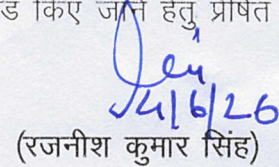 ड किए जाने हेतु प्रेषित
4/6/26
(रजनीश कुमार सिंह)